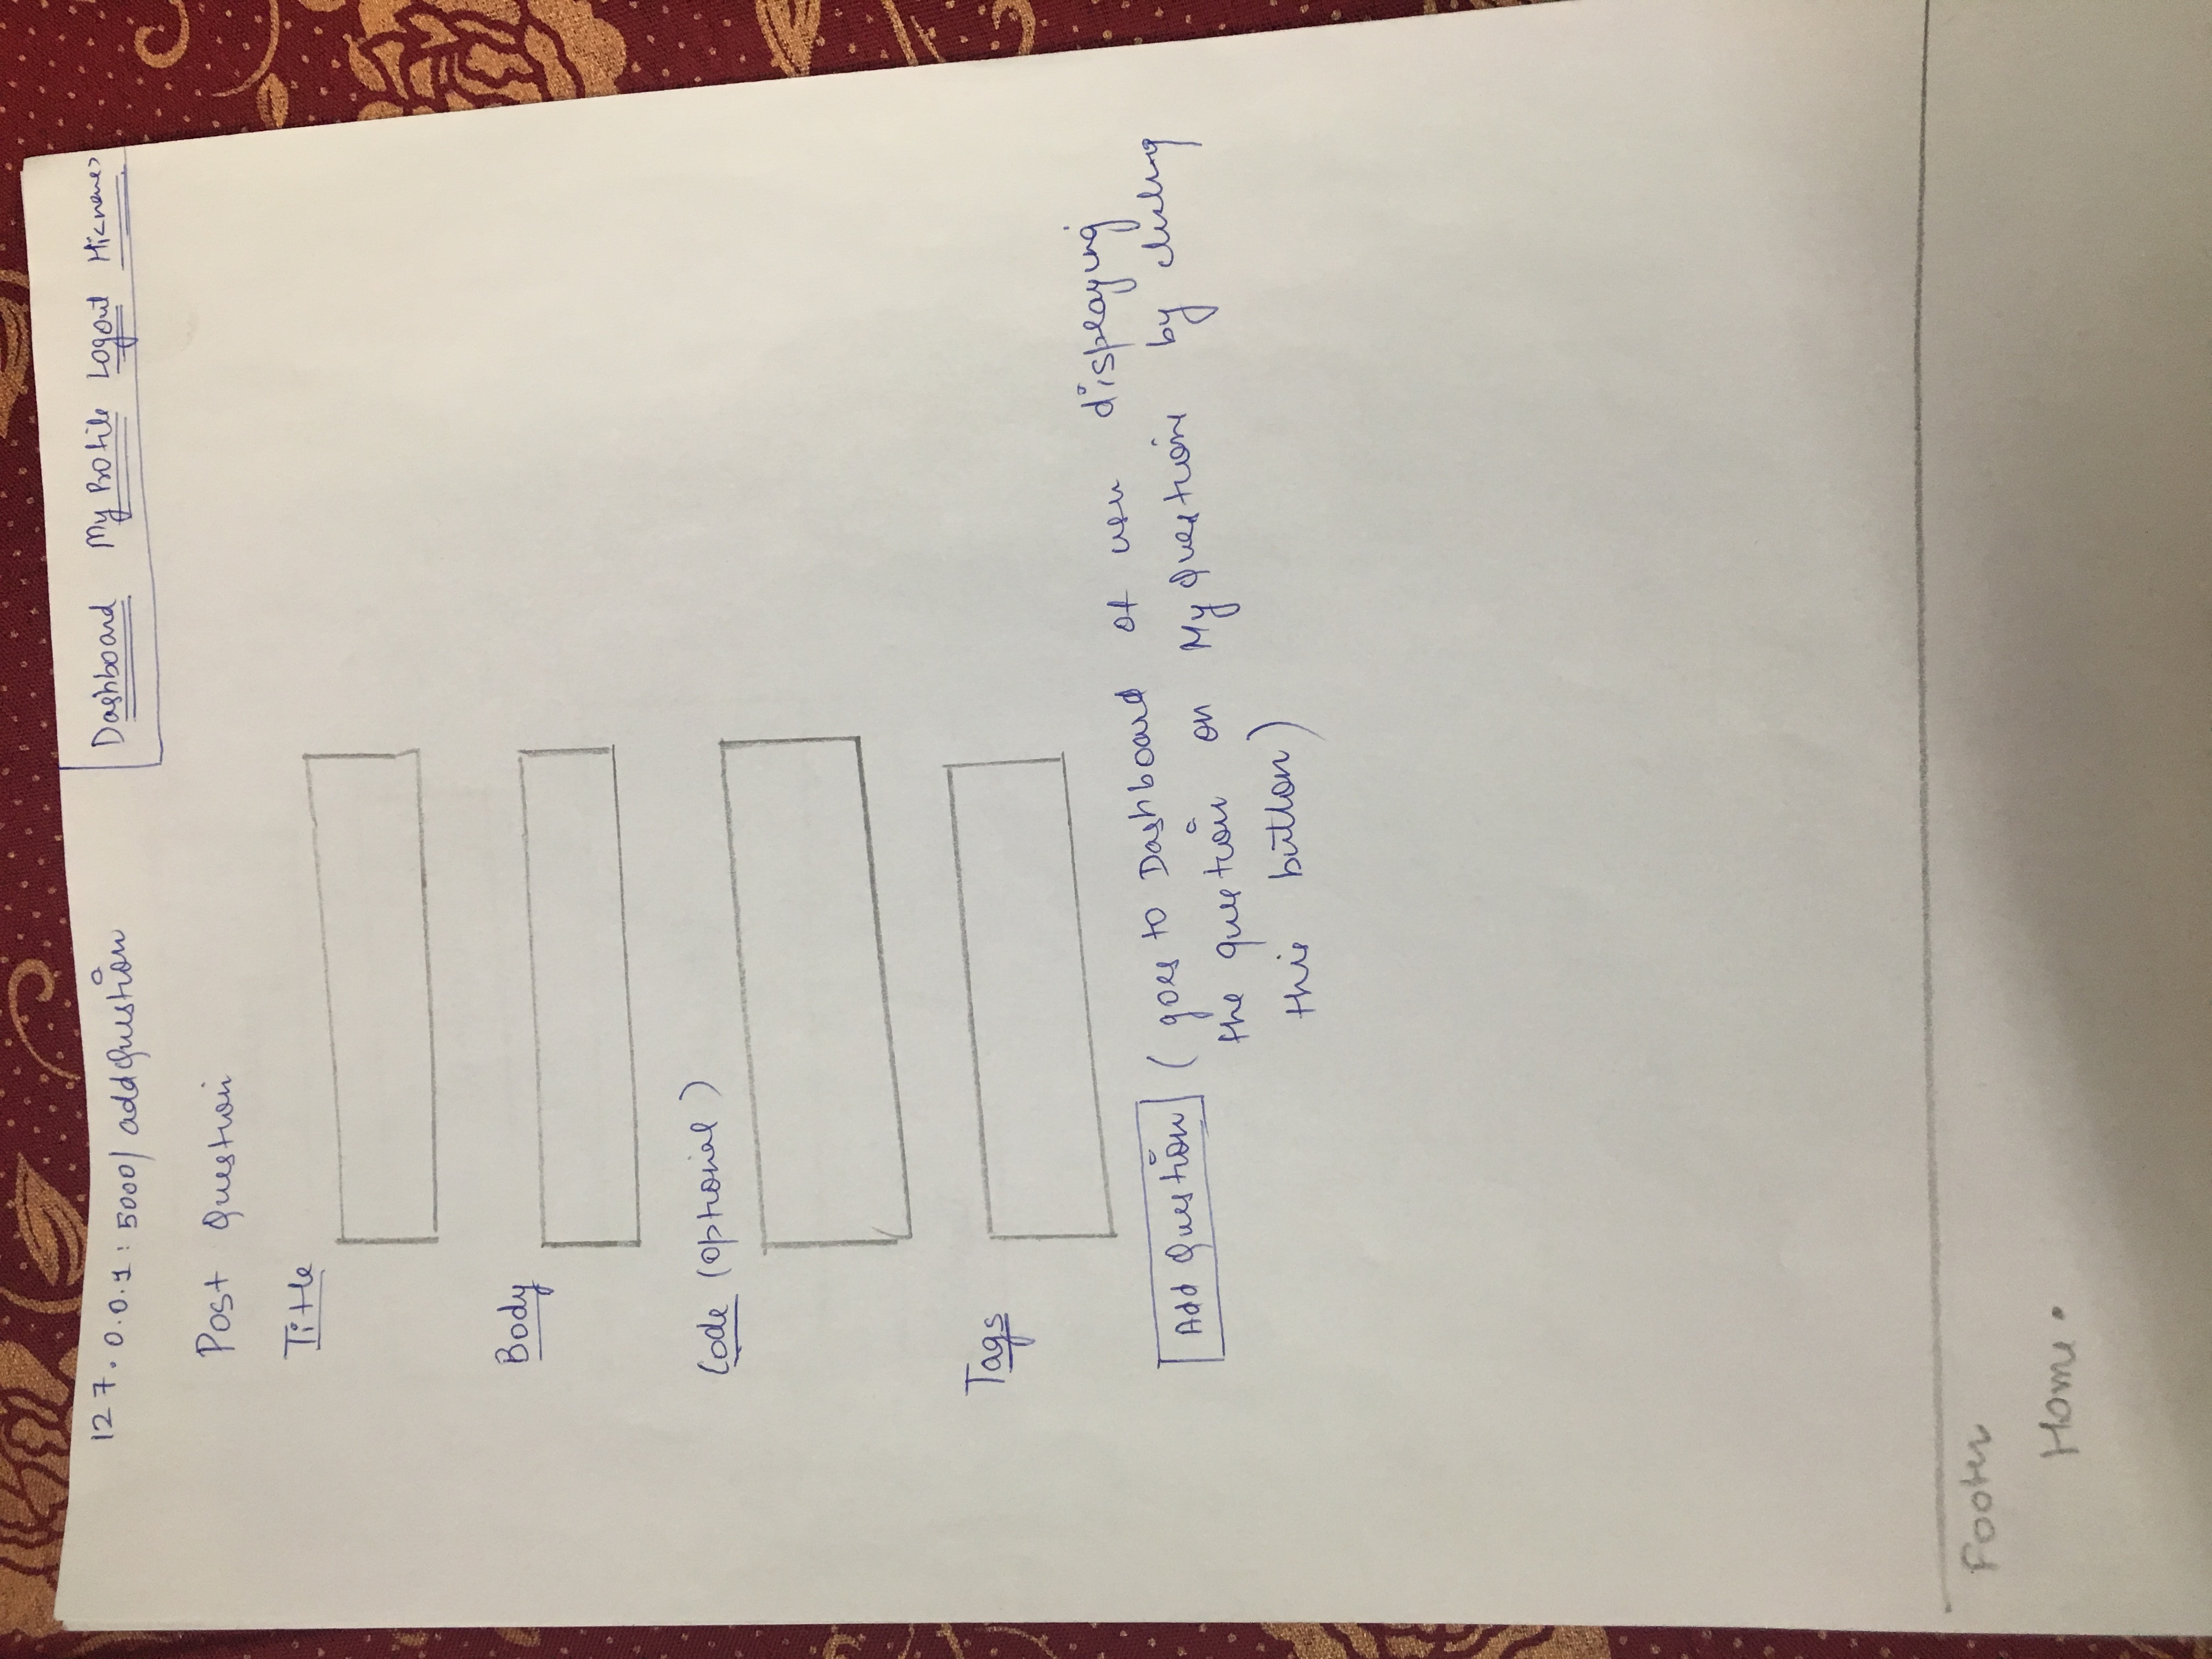 127.0.0.1:5000/addQuestion
Dashboard My Profile Logout Hi<name>
Post Question
Title
Body
Code (optional)
Tags
Add Question (goes to Dashboard of user displaying
the question on My Questions by clicking
this button)
Footer
Home.